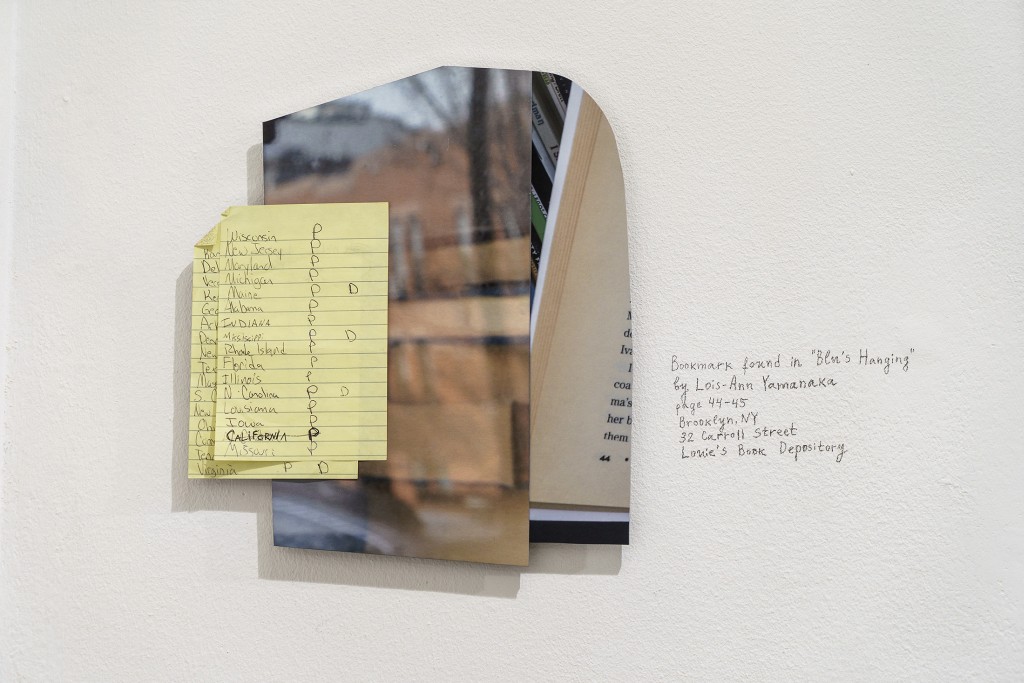 Wisconsin P
New Jersey P
Maryland P
Michigan P
Maine P D
Alabama P
INDIANA P
P D
Rhode Island P
Florida P
Illinois P
N. Carolina P D
Louisiana P
Iowa P
CALIFORNIA P
Missouri P
Kan
Del
Ver
Ke
Geo
Ne
Te
S. C
New
Virginia P D
dman
M
de
Iva
I
coa
ma's
her b
them
44 •
Bookmark found in "Blu's Hanging"
by Lois-Ann Yamanaka
page 44-45
Brooklyn, NY
32 Carroll Street
Louie's Book Depository